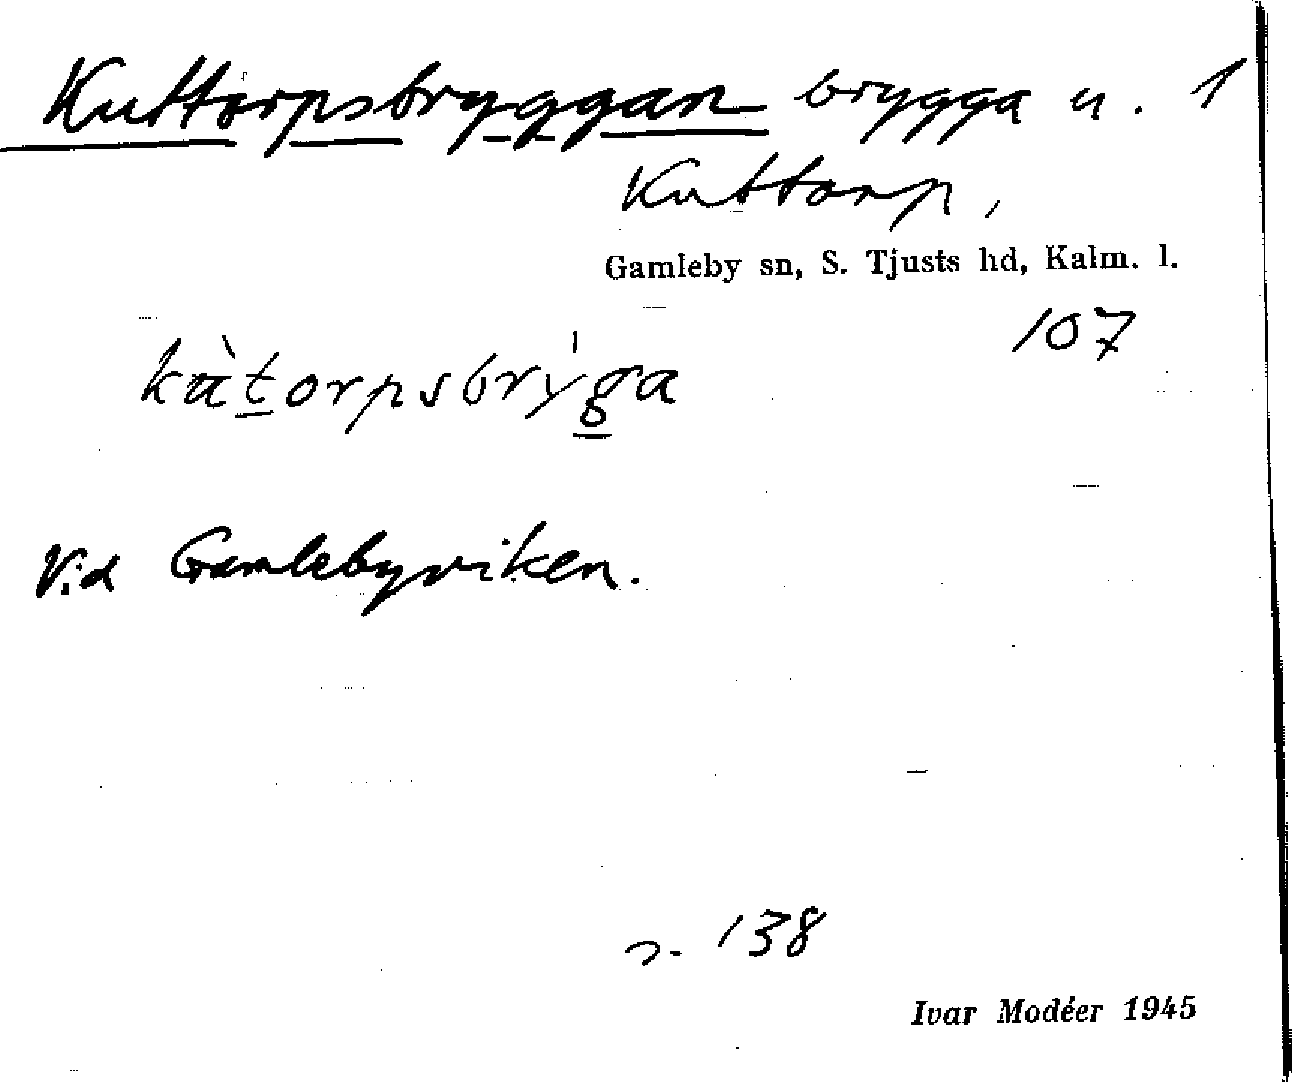 Kuttorpsbryggan brygga u. 1
Kuttorp,
Gamleby sn, S. Tjusts hd, Kalm. l.
107
kàt̲orpsbrýg̲a
Vid Gamlebyviken.
s. 138
Ivar Modéer 1945